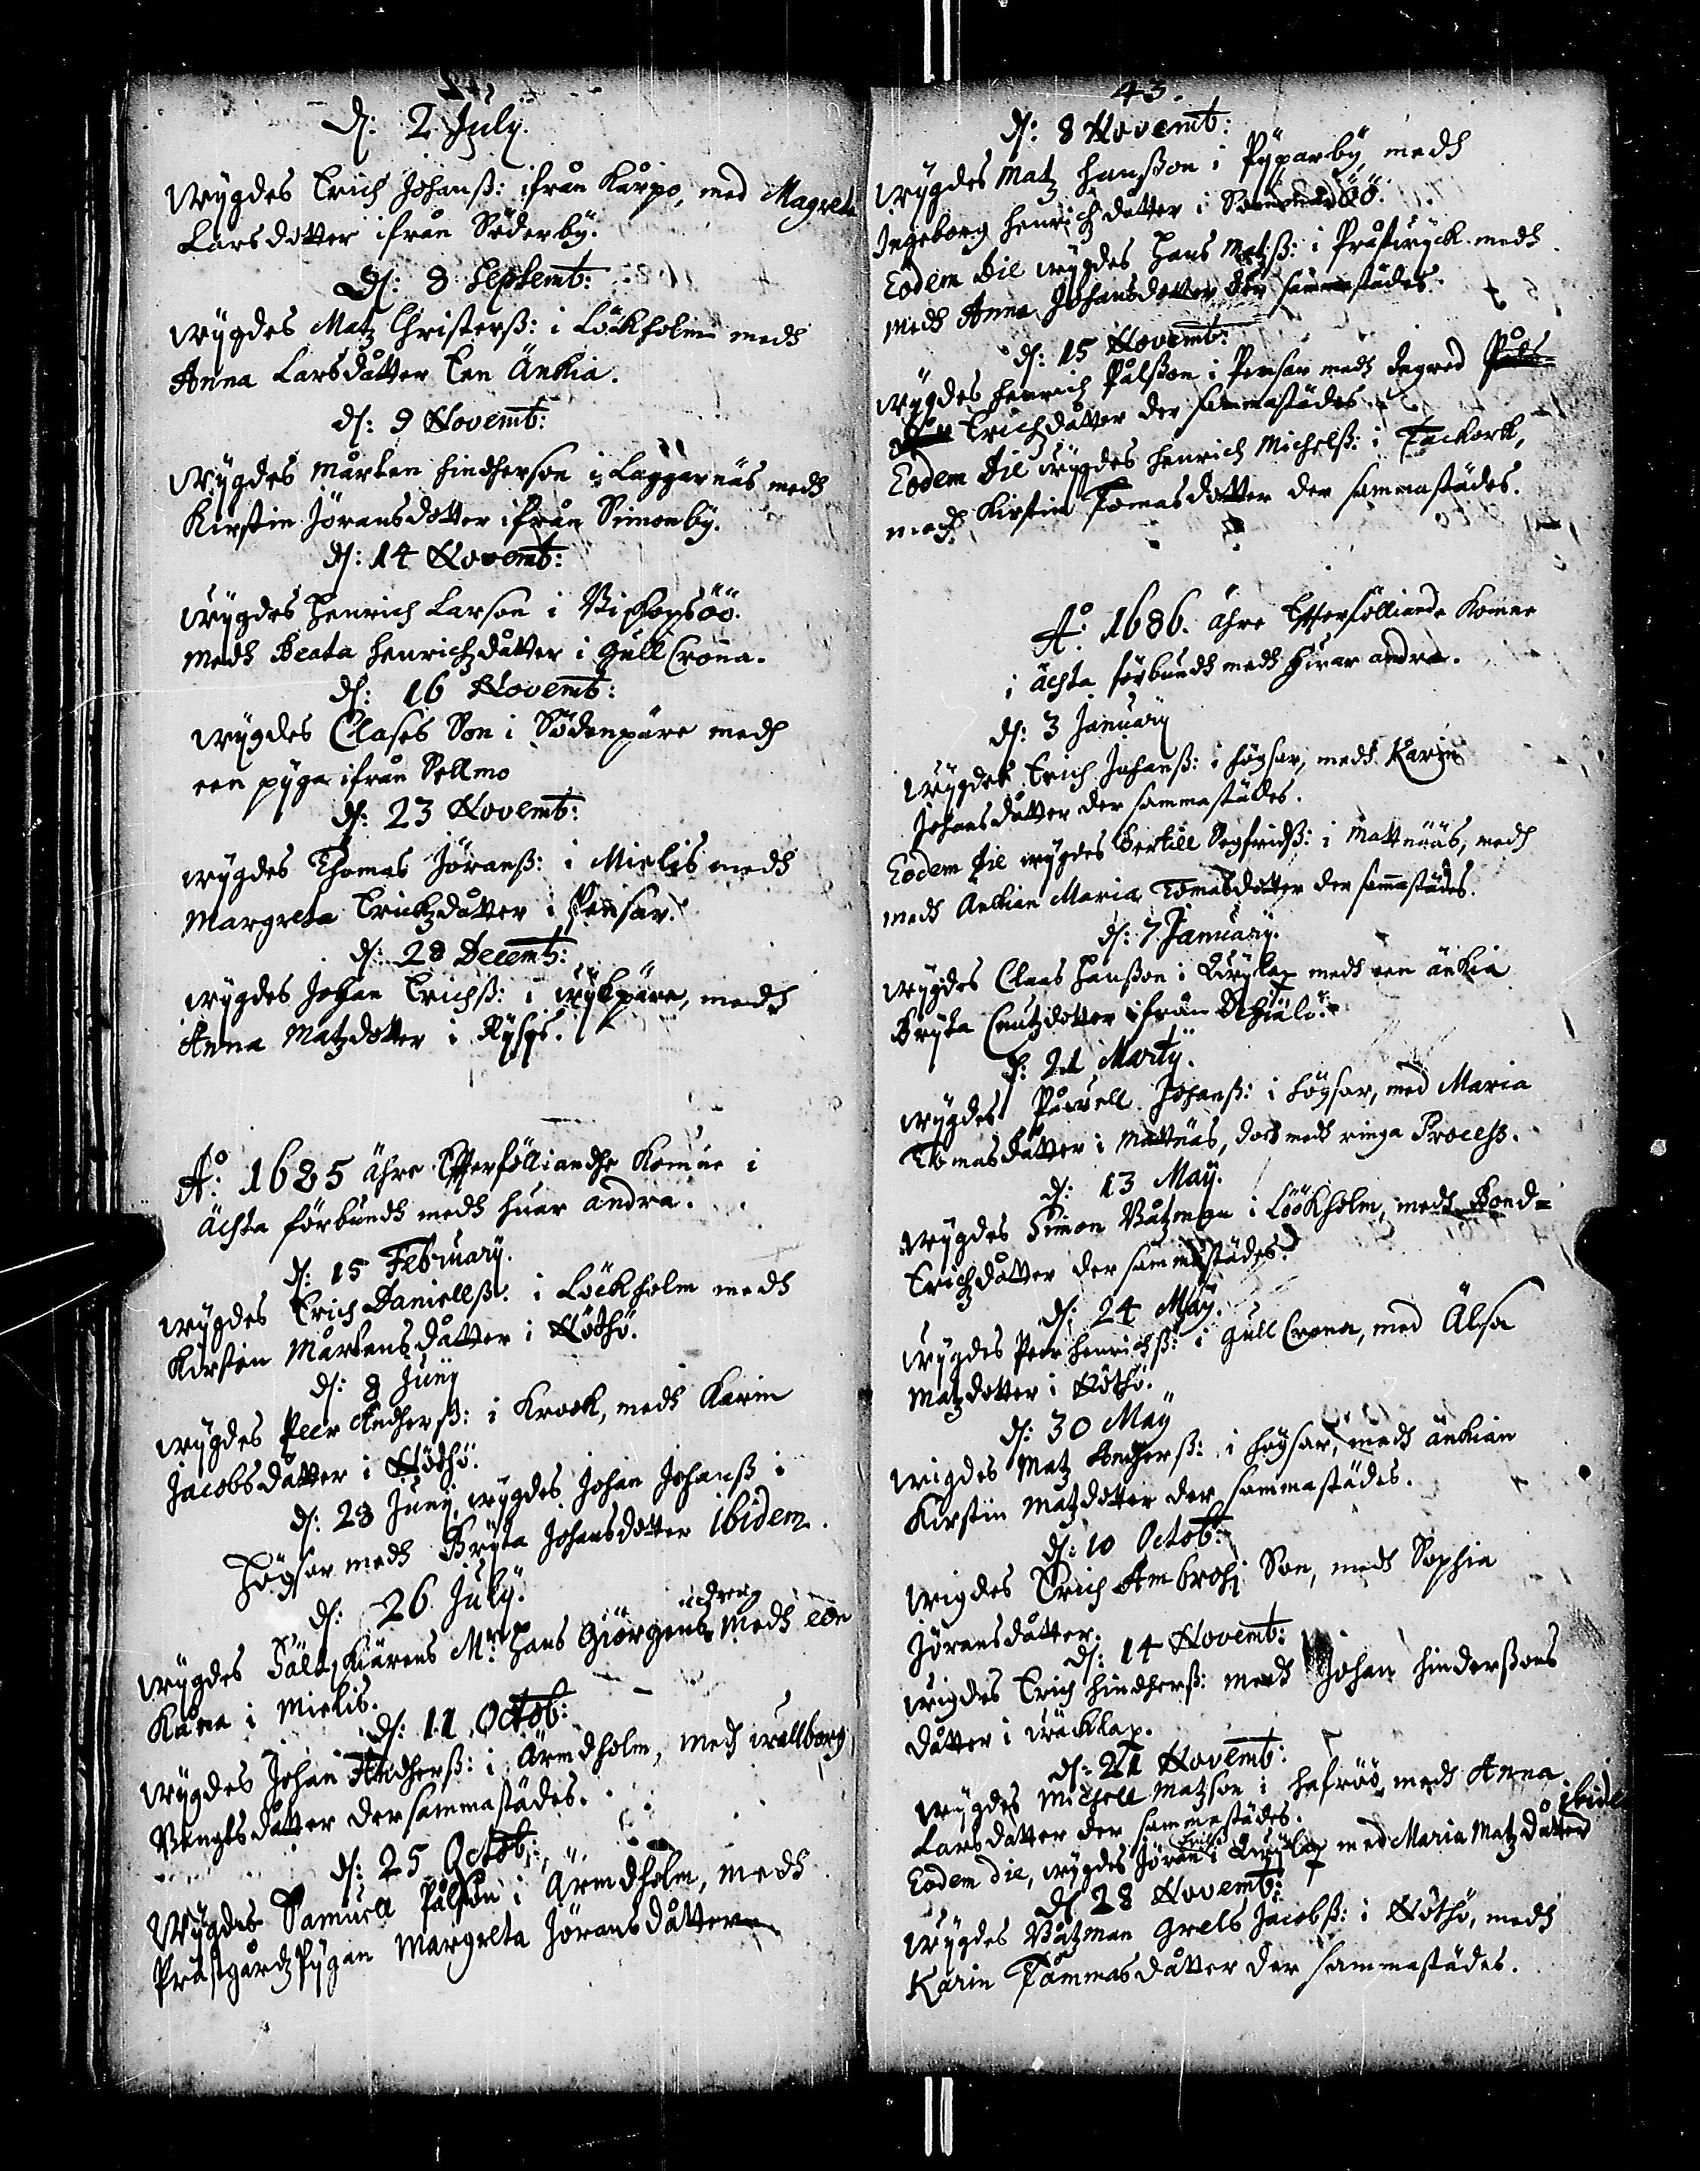 d: 2 July.
wygdes Erich Johanß: ifrån Kårpo, med Magreta
Larsdotter ifrån Söderby.
d: 8 Septemb:
wygdes Matz Christerß: i Löökholm medh
Anna Larsdåtter Een Änkia.
d: 9 Novemb:
wygdes Mårten Hindherson i Laggarnäs medh
Kirstin Jöransdotter ifrån Simonby.
d: 14 Novemb:
wygdes Henrich Larson i Biskopsöö.
medh Beata Henrichzdåtter i Gull Crona.
d: 16 Novemb:
wygdes Clases Son i Södenpäre medh
een pyga ifrån Sellmo
d: 23 Novemb:
wygdes Thomas Jöranß: i Mielis medh
Margreta Erichzdåtter i Pensar.
d: 28 Decemb:
wygdes Johan Erichß: i wykpäre, medh
Anna Matzdotter i Rysys.
Aº: 1685 åhre Effterfölliandhe komne i
ächta förbundh medh huar andra.
d: 15 February.
wygdes Erich Daniellß: i Löökholm medh
Kirstin Mårtensdåtter i Nöthö.
d: 8 Juny
wygdes Peer Andherß: i Krook, medh Karin
Jacobsdåtter i Nödhö.
d: 28 Juny wygdes Johan Johanß i
Högsar medh Bryta Johansdotter ibidem.
d: 26 July.
dreng
wygdes Mr: Hans Giörgens medh een
Kåna i Mielis.
d: 11 Octob:
wygdes Johan Andherß: i Ärmdholm, medh wallborg
Bengtsdåtter dersammastädes.
d: 25 Octob:
wygdes Samuell Pålson i Ärmdholm, medh
Prästgårdz Pygan Margreta Jöransdåtter
43.
d: 8 Novemb:
wygdes Matz Hanßon i Pyparby, medh
Ingeborg Henrichzdåtter i
Eodem Die wygdes Hans Matzß: i Prästwyck medh
medh Anna Johansdotter der sammastädes.
d: 15 Novemb:
wygdes Henrich Pålßon i Pensar medh Segred
Erichzdåtter der sammastädes
Eodem Die wygdes Henrich Michelß: i Tackork,
medh Kirstin Tomasdotter der sammastädes.
Aº: 1686. åhre Effterfölliande komne
i ächta förbundh medh huar andra.
d: 3 January
wygdes Erich Johanß: i Högsar, medh Karin
Johansdåtter der sammastädes.
Eodem Die wygdes Bertill Segfridß: i Mattnääs, medh
medh Änkian Maria Tomasdotter der sammastädes.
d: 7 January.
wygdes Claas Hanßon i medh een änkia
Bryta Cnutzdotter ifrån
d: 21 Marty.
wygdes Påwell Johanß: i Högsar, med Maria
Tomasdåtter i Mattnäs, doch medh ringa Process.
d: 13 May.
wygdes Simon Båtzman i Löökholm, medh Bond=
Erichzdåtter der sammastädes.
d: 24 May.
wygdes Peer Henrichß: i Gull Crona, med Älsa
Matzdotter i Nöthö.
d: 30 May
wigdes Matz Andherß: i Högsar, medh änkian
Kirstin Matzdotter der sammastädes.
d: 10 Octob:
wigdes Erich Ambrosj Son, medh Sophia
Jöransdåtter.
d: 14 Novemb:
wigdes Erich Hindherß: medh Johan Hinderßons
dåtter i wäcklax.
d: 21 Novemb:
wygdes Michell Matzson i Hafröö medh Anna
Larsdåtter der sammastädes.
ibidem
Erichß
Eodem die, wygdes Jöran i med Maria Matzdåtter
d: 28 Novemb:
wygdes Båtzman Grels Jacobß: i Nöthö, medh
Karin Tåmmasdåtter der sammastädes.